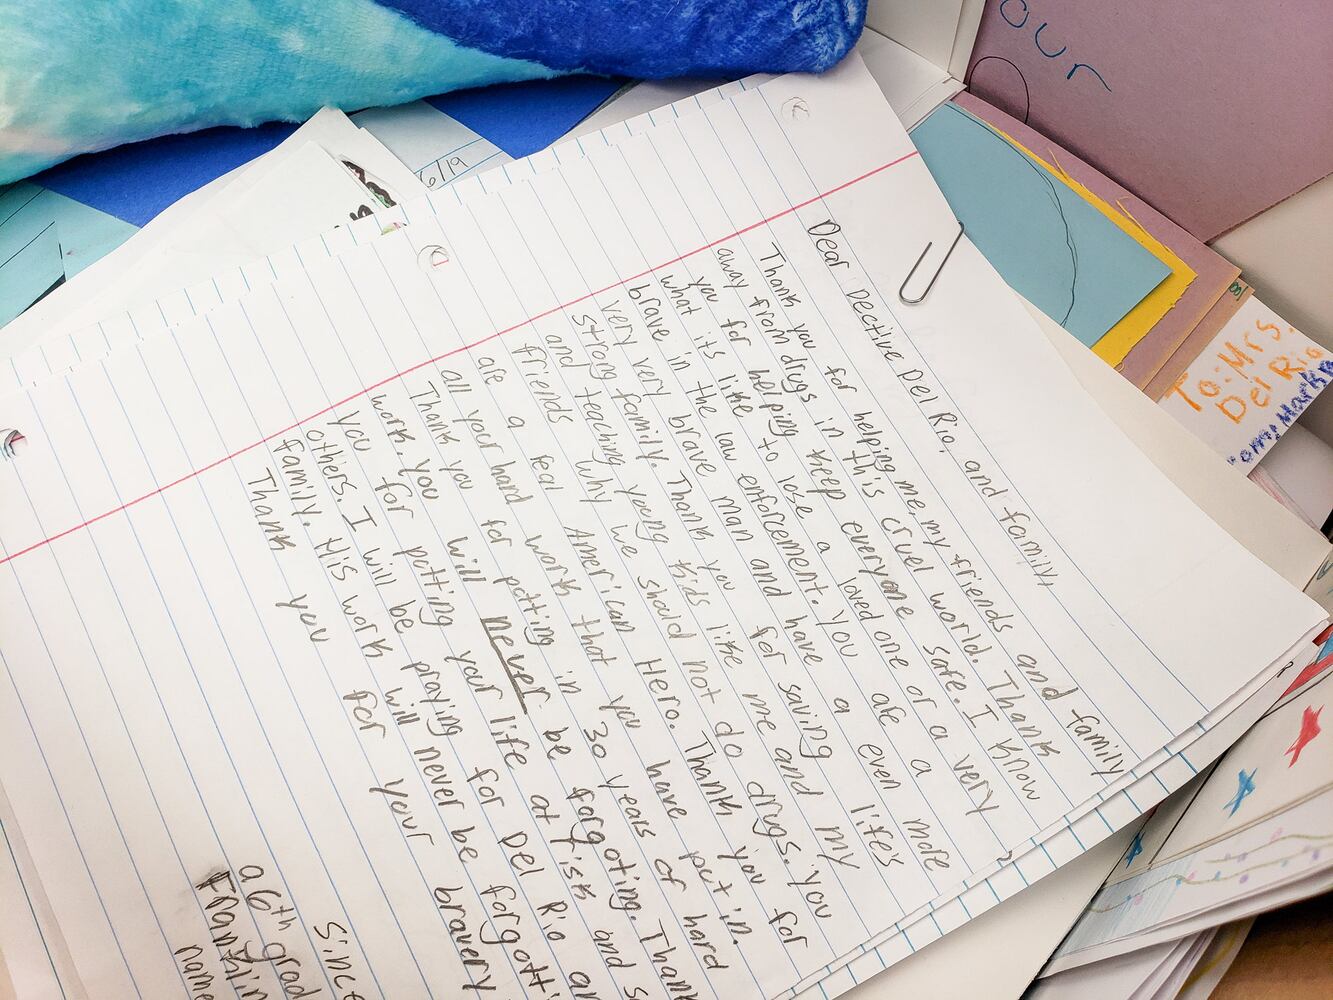 our
6/19
To: Mrs.
Del Rio
Dear Dective Del Rio, and family,
Thank you for helping me, my friends and family
away from drugs in this cruel world. Thank
you for helping keep everyone safe. I know
what its like to lose a loved one or a very
brave in the law enforcement. You are even more
very very brave man and have a
strong family. Thank you for saving my life's
and teaching young kids like me and my
friends why we should not do drugs. You
are a real American Hero. Thank you for
all your hard work that you have put in.
Thank you for putting in 30 years of hard
work. You will never be forgoting. Thank
you for putting your life at risk and s
others. I will be praying for Del Rio an
family. His work will never be forgott
Thank you for your bravery
Since
a 6th grad
Franklin
name